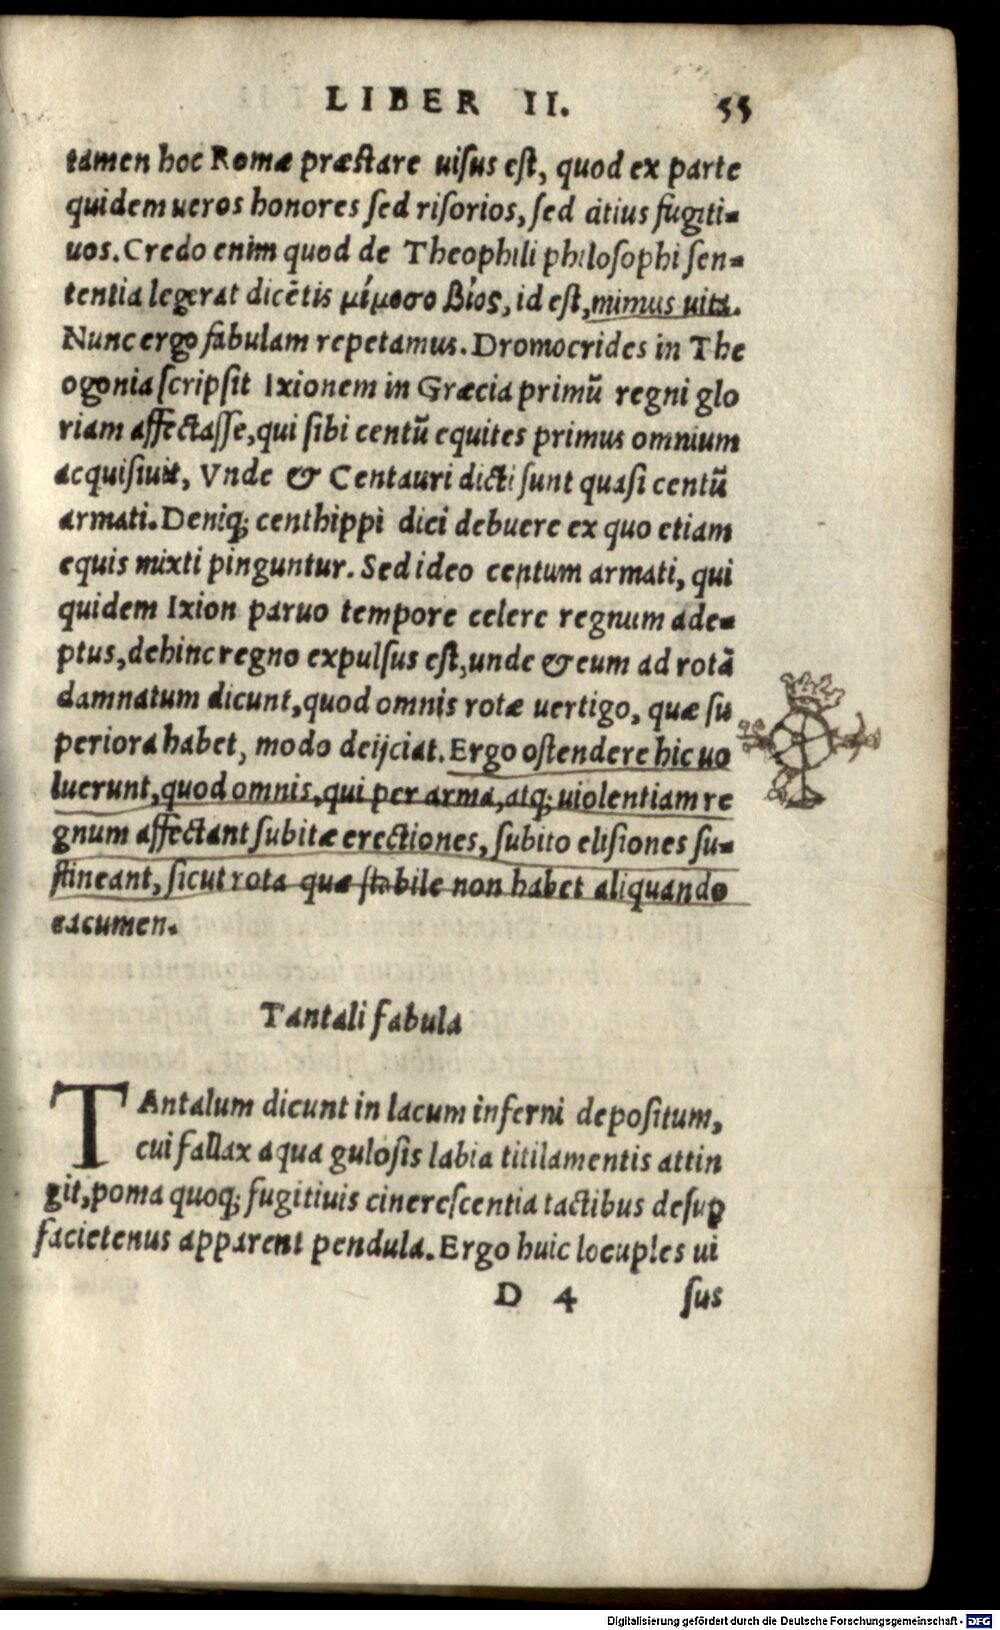 LIBER II. 55
tamen hoc Romæ præſtare uiſus eſt, quod ex parte
quidem ueros honores ſed riſorios, ſed citius fugiti-
uos. Credo enim quod de Theophili philoſophi ſen-
tentia legerat dicẽtis μίμοσο βίος, id eſt, mimus uita.
Nunc ergo fabulam repetamus. Dromocrides in The
ogonia ſcripſit Ixionem in Græcia primũ regni glo
riam affectaſſe, qui ſibi centũ equites primus omnium
acquiſiuit, Vnde & Centauri dicti ſunt quaſi centũ
armati. Deniq; centhippi dici debuere ex quo etiam
equis mixti pinguntur. Sed ideo centum armati, qui
quidem Ixion paruo tempore celere regnum ade-
ptus, dehinc regno expulſus eſt, unde & eum ad rotã
damnatum dicunt, quod omnis rotæ uertigo, quæ ſu
periora habet, modo deijciat. Ergo oſtendere hic uo
luerunt, quod omnis, qui per arma, atq; uiolentiam re
gnum affectant ſubitæ erectiones, ſubito eliſiones ſu-
ſtineant, ſicut rota quæ ſtabile non habet aliquando
cacumen.
Tantali fabula
TAntalum dicunt in lacum inferni depoſitum,
cui fallax aqua guloſis labia titilamentis attin
git, poma quoq; fugitiuis cinereſcentia tactibus deſuꝑ
facietenus apparent pendula. Ergo huic locuples ui
D 4 ſus
Digitalisierung gefördert durch die Deutsche Forschungsgemeinschaft - DFG